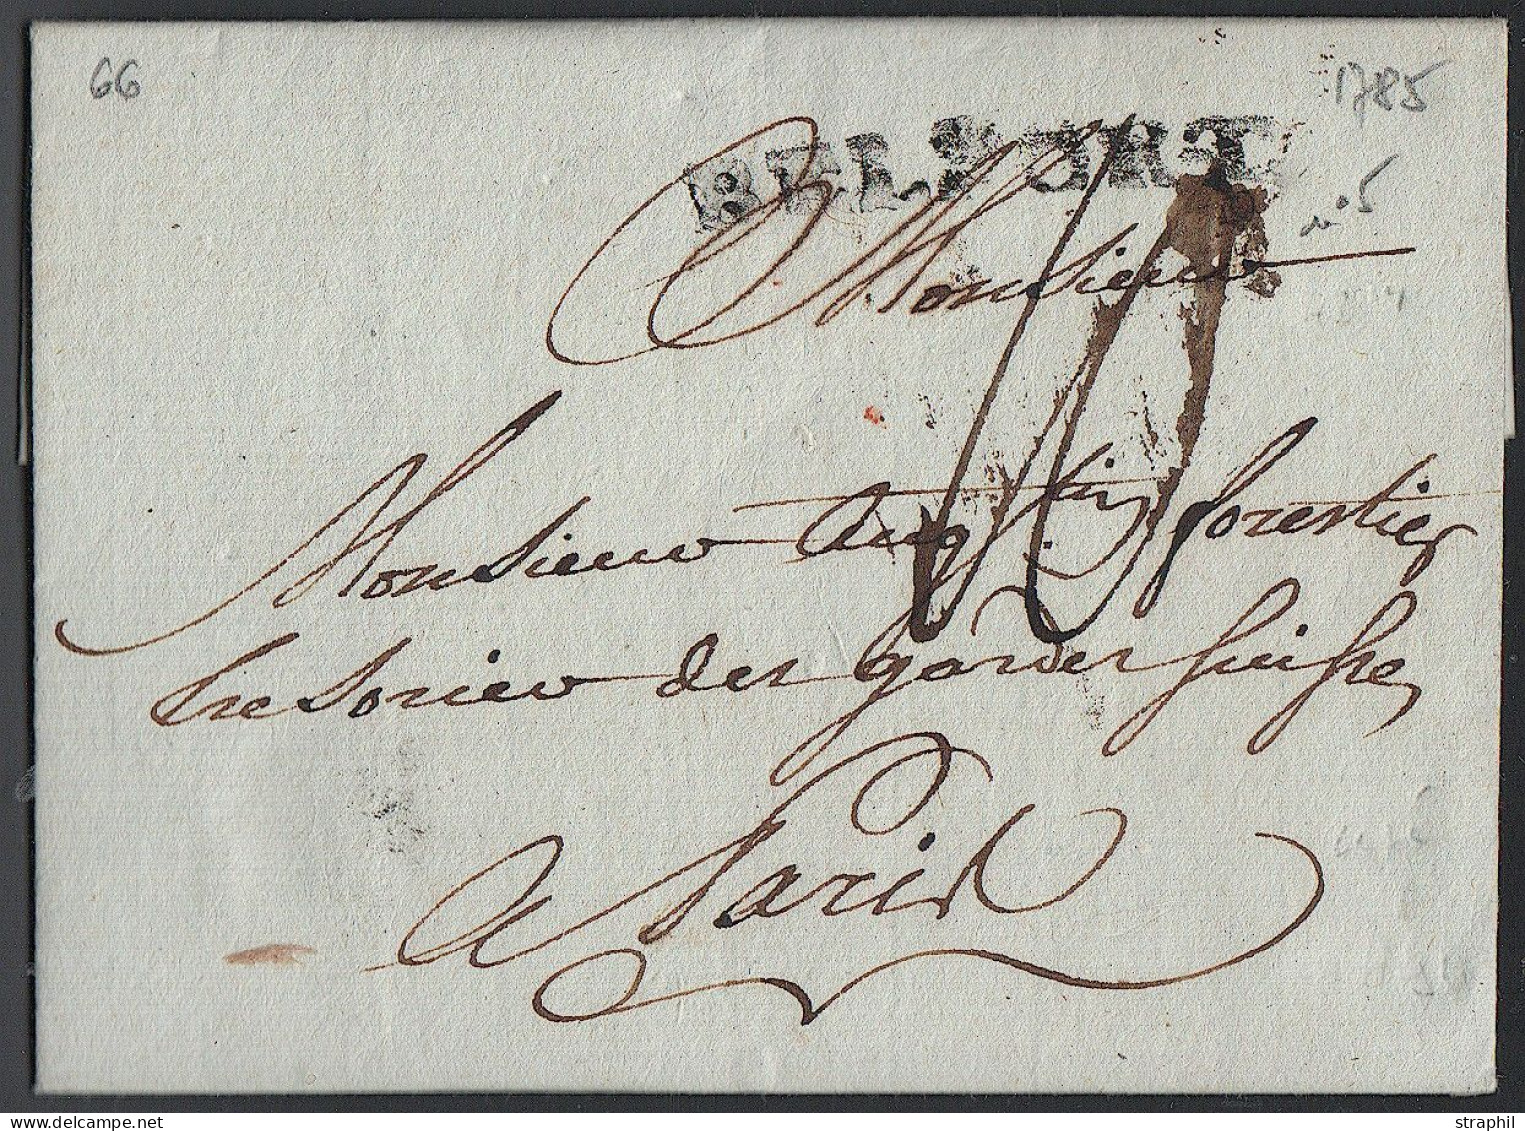 66
1785
BELFORT
n° 5
Monsieur
Monsieur Augtin forestier
tresorier des gardes suisse
A Paris
10
STRAPHIL